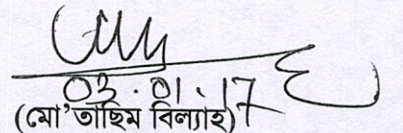 03.01.17
(মো'তাছিম বিল্যাহ)